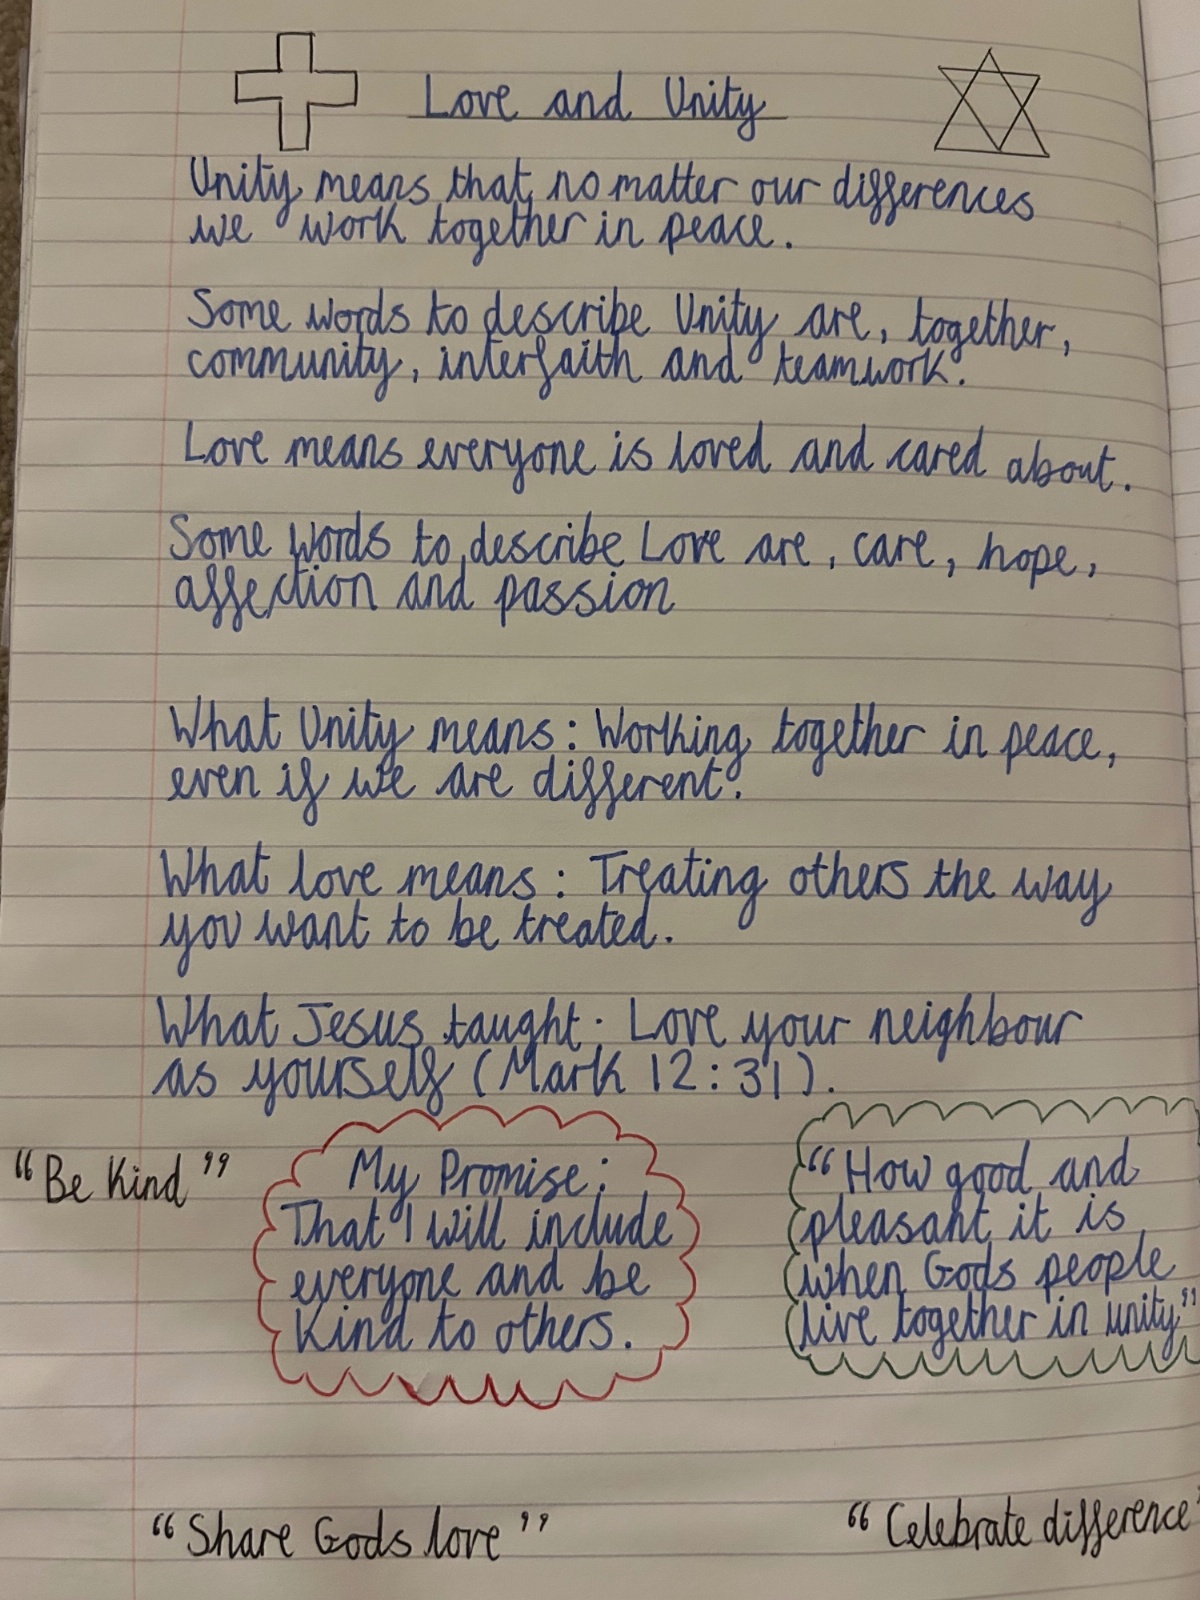 Love and Unity
Unity means that no matter our differences
we work together in peace.
Some words to describe Unity are, together,
community, interfaith and teamwork.
Love means everyone is loved and cared about.
Some words to describe Love are, care, hope,
affection and passion
What Unity means: Working together in peace,
even if we are different.
What love means: Treating others the way
you want to be treated.
What Jesus taught: Love your neighbour
as yourself (Mark 12:31).
"Be Kind"
My Promise:
That I will include
everyone and be
Kind to others.
"How good and
pleasant it is
when Gods people
live together in unity"
"Share Gods love"
"Celebrate difference"